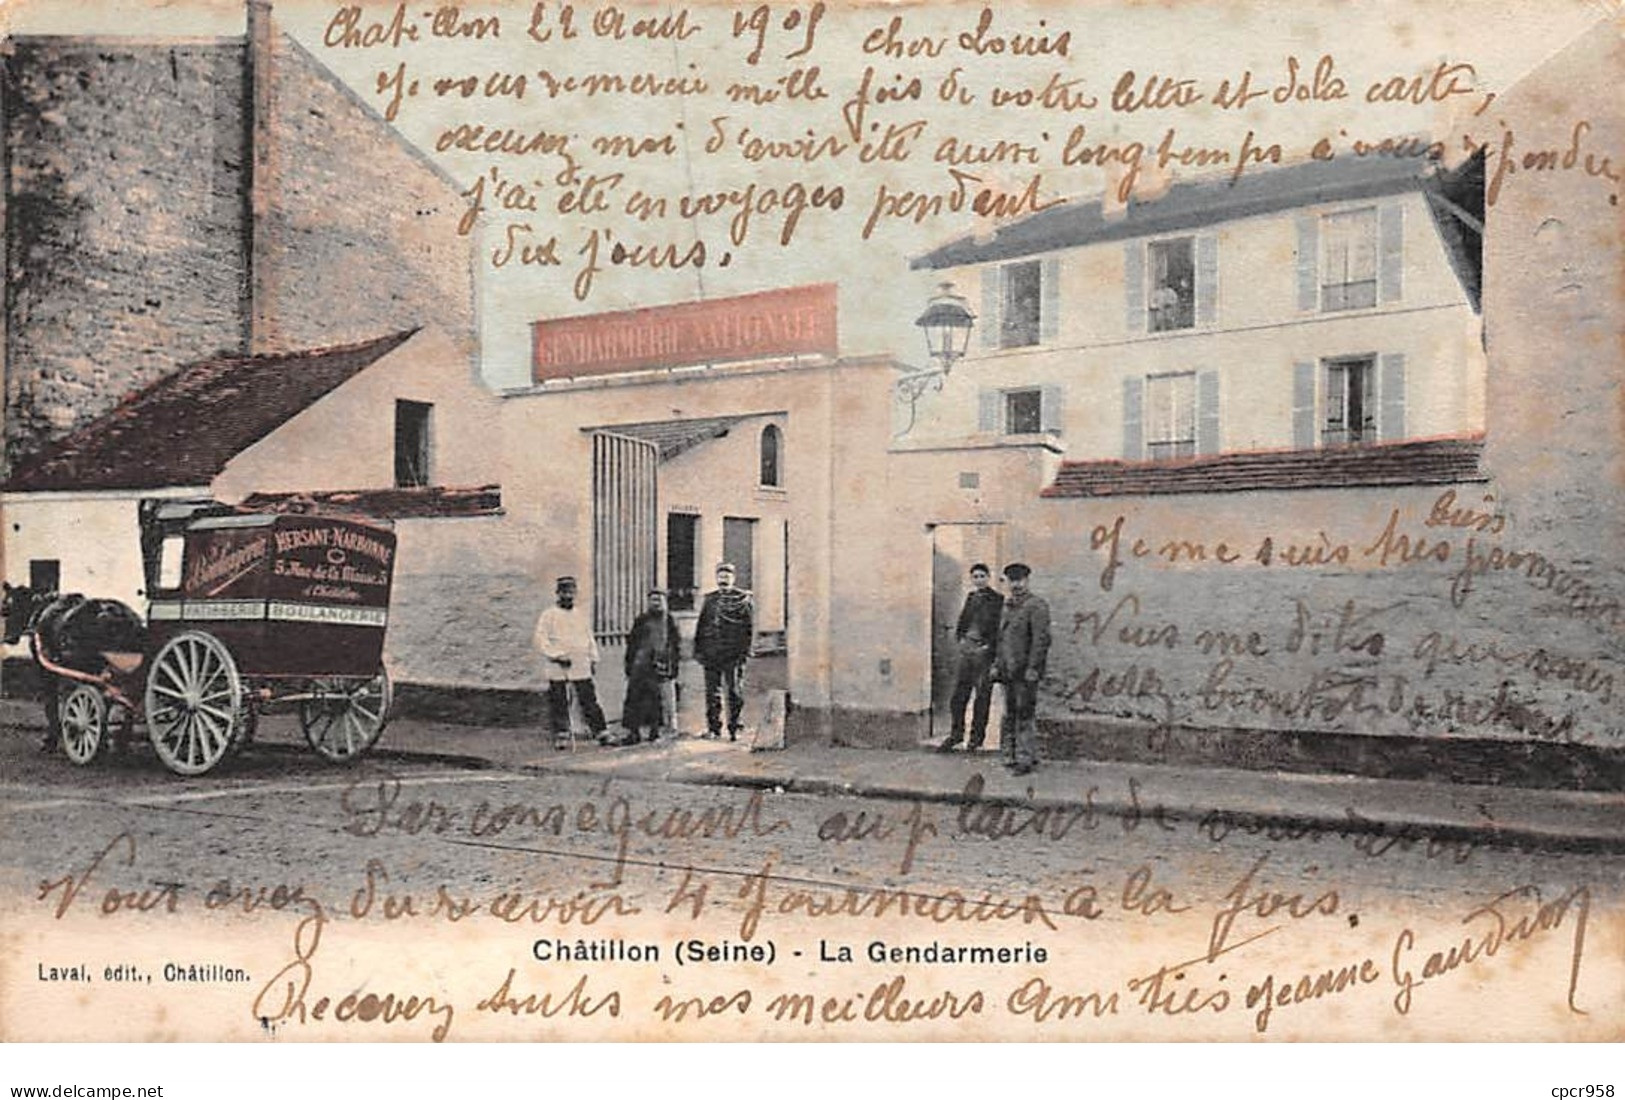 Chatillon 22 Aout 1905 cher Louis
Je vous remercie mille fois de votre lettre et dela carte,
excusez moi d'avoir été aussi longtemps a vous répondre.
j'ai été en voyages pendant
dix jours.
GENDARMERIE NATIONALE
HERSANT-NARBONNE
5, Rue de la
à Châtillon
PATISSERIE BOULANGERIE
bien
Je me suis très promener
Vous me dites que vous
serez bientot de retour
Par conséquent au plaisir de vous
Vous avez du recevoir 4 Journeaux a la fois.
Châtillon (Seine) - La Gendarmerie
Laval, édit., Châtillon.
Recevez toutes mes meilleurs Amitiés Jeanne Gaudion
www.delcampe.net
cpcr958